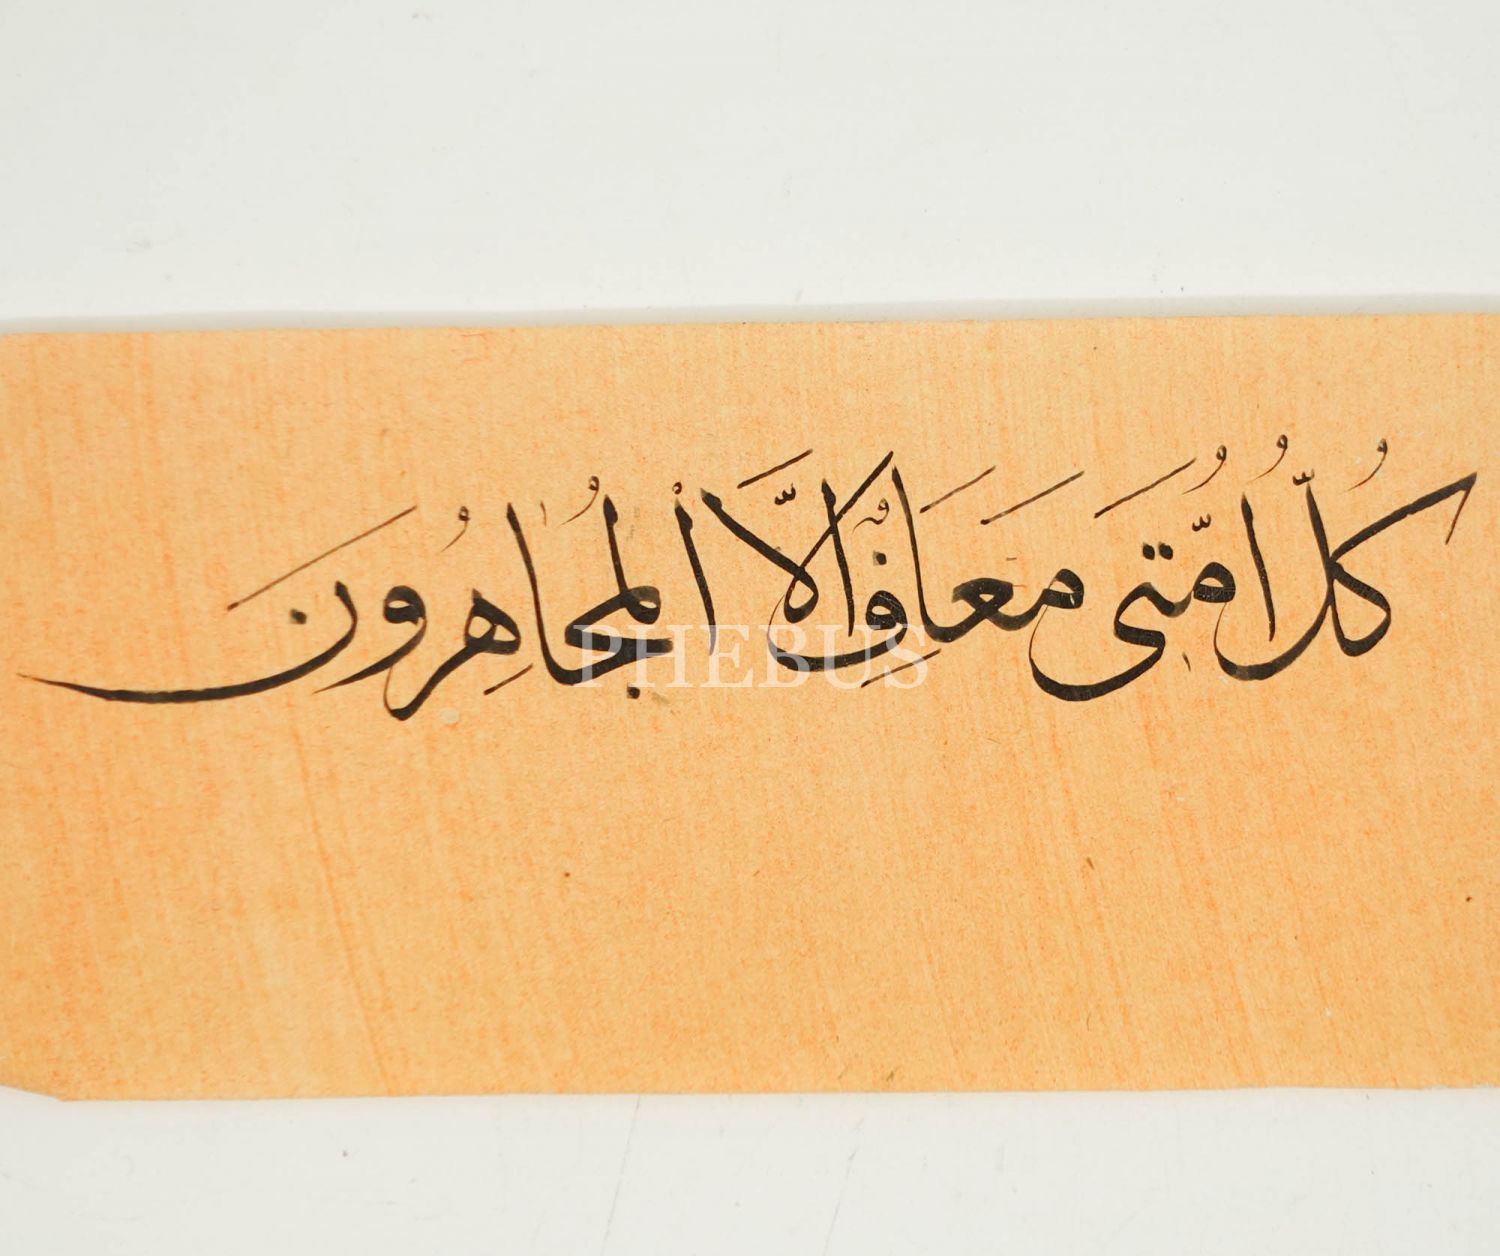 كُلُّ اُمَّتى مَعَافٍ اِلَّا الْمُجَاهِرُونَ
PHEBUS